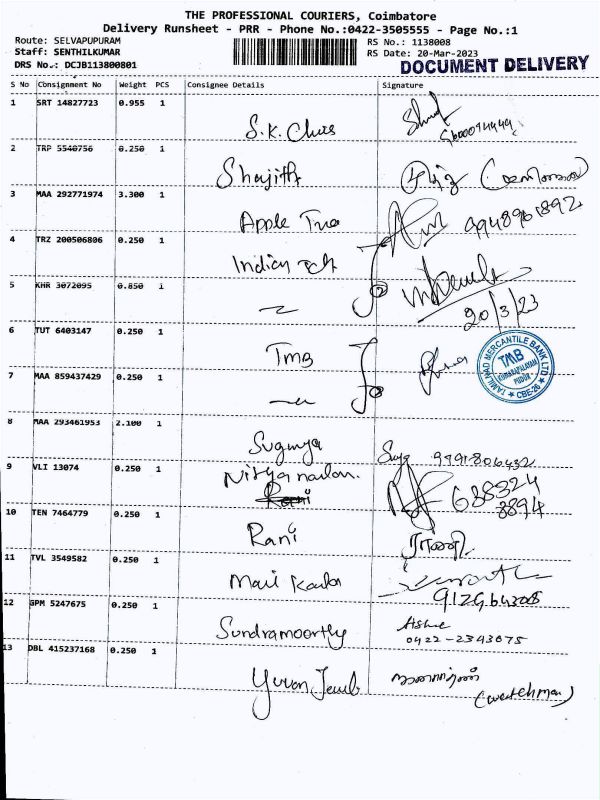 THE PROFESSIONAL COURIERS, Coimbatore
Delivery Runsheet - PRR - Phone No.:0422-3505555 - Page No.:1
Route: SELVAPUPURAM RS No.: 1138008
Staff: SENTHILKUMAR RS Date: 20-Mar-2023
DRS No.: DCJB113800801 DOCUMENT DELIVERY
S No Consignment No Weight PCS Consignee Details Signature
1 SRT 14827723 0.955 1
S.K.
2 TRP 5540756 0.250 1
Shajith
3 MAA 292771974 3.300 1
Apple
4 TRZ 200506806 0.250 1
Indian
5 KHR 3072095 0.850 1
20/3/23
6 TUT 6403147 0.250 1
TMB
TAMILNAD MERCANTILE BANK LTD
TMB
CBE-26
7 MAA 859437429 0.250 1
8 MAA 293461953 2.100 1
Sugunya
9 VLI 13074 0.250 1
638324
3894
10 TEN 7464779 0.250 1
Rani ராணி
11 TVL 3549582 0.250 1
Mail
12 GPM 5247675 0.250 1
Sundramoorthy
0422-2343075
13 DBL 415237168 0.250 1
(watchman)